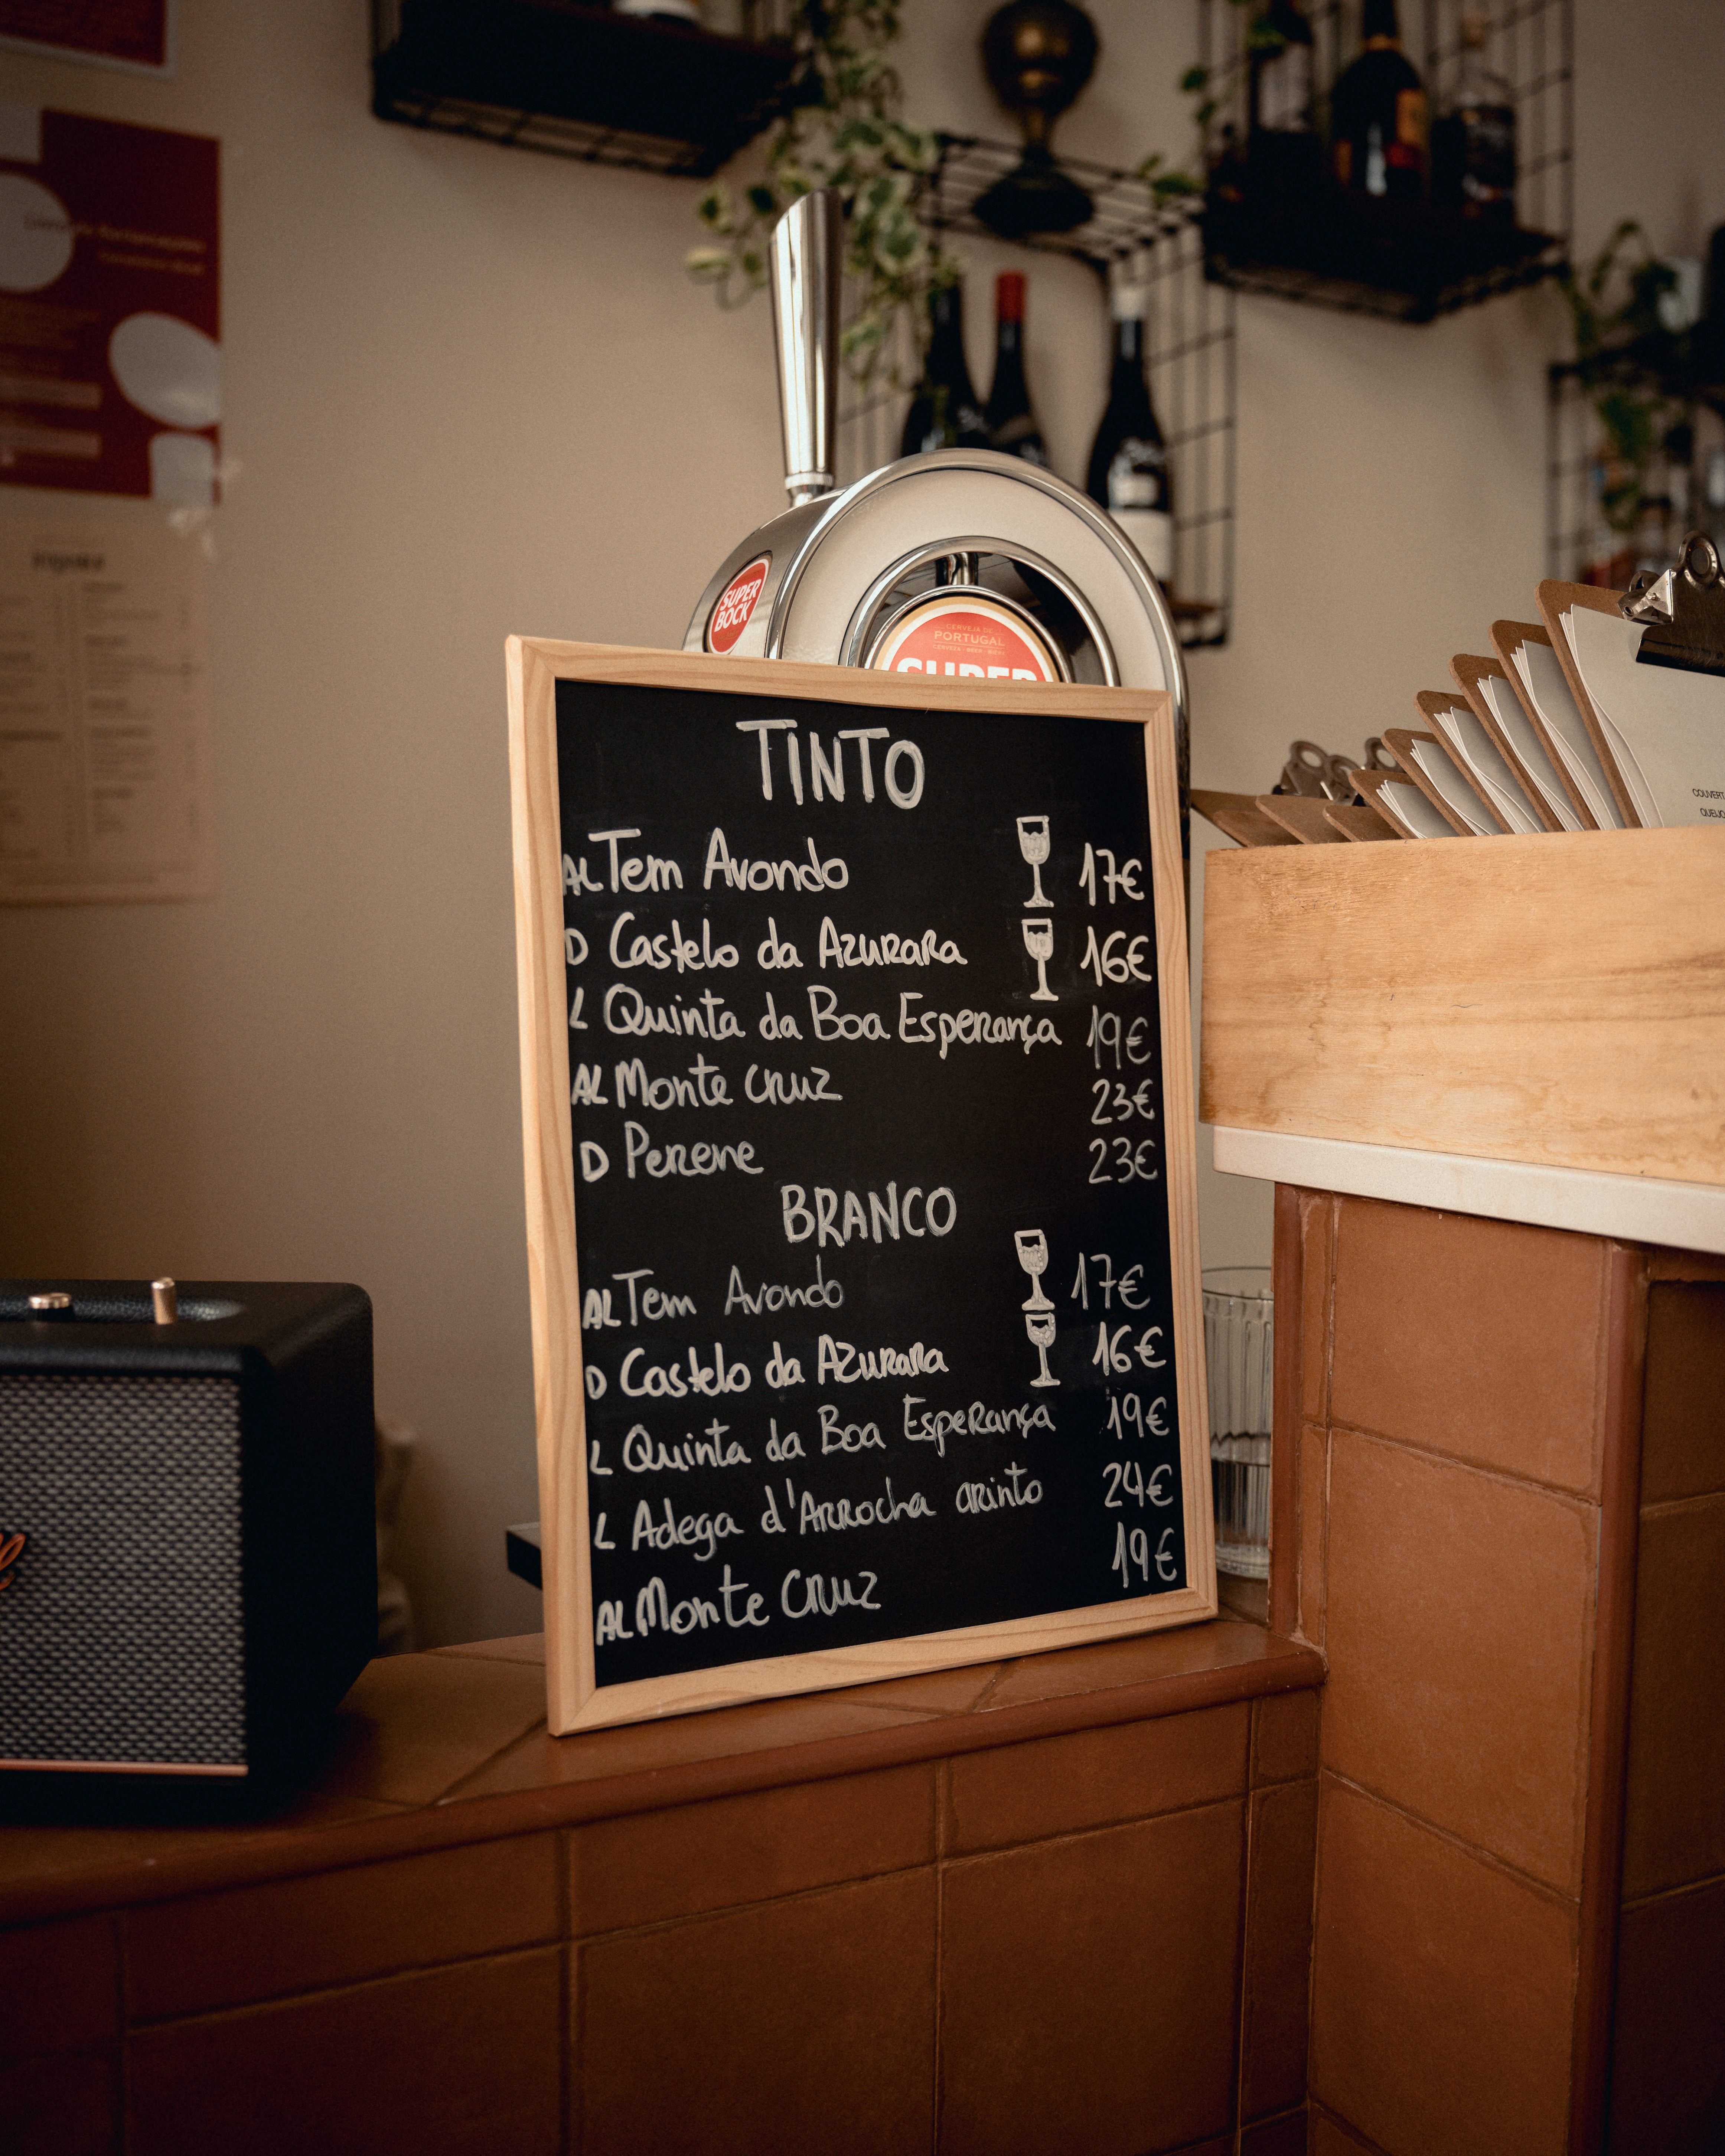 SUPER
BOCK
CERVEJA DE
PORTUGAL
CERVEZA · BEER · BIÈRE
SUPER
TINTO
AL Tem Avondo 17€
D Castelo da Azurara 16€
L Quinta da Boa Esperança 19€
AL Monte Cruz 23€
D Perene 23€
BRANCO
AL Tem Avondo 17€
D Castelo da Azurara 16€
L Quinta da Boa Esperança 19€
L Adega d'Arrocha arinto 24€
AL Monte Cruz 19€
COUVERT
QUEIJO